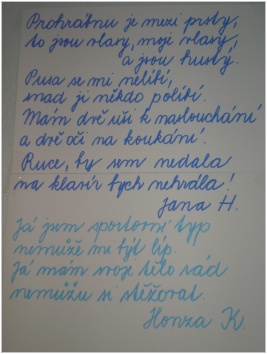 Prohrábnu je mezi prsty,
to jsou vlasy, moji vlasy,
a jsou hustý.
Pusa se mi nelíbí,
snad ji někdo políbí.
Mám dvě uši k naslouchání
a dvě oči na koukání.
Ruce, ty sem nedala
na klavír bych nehrála!
Jana H.
Já jsem sportovní typ
nemůže mi být líp.
Já mám svoje tělo rád
nemůžu si stěžovat.
Honza K.